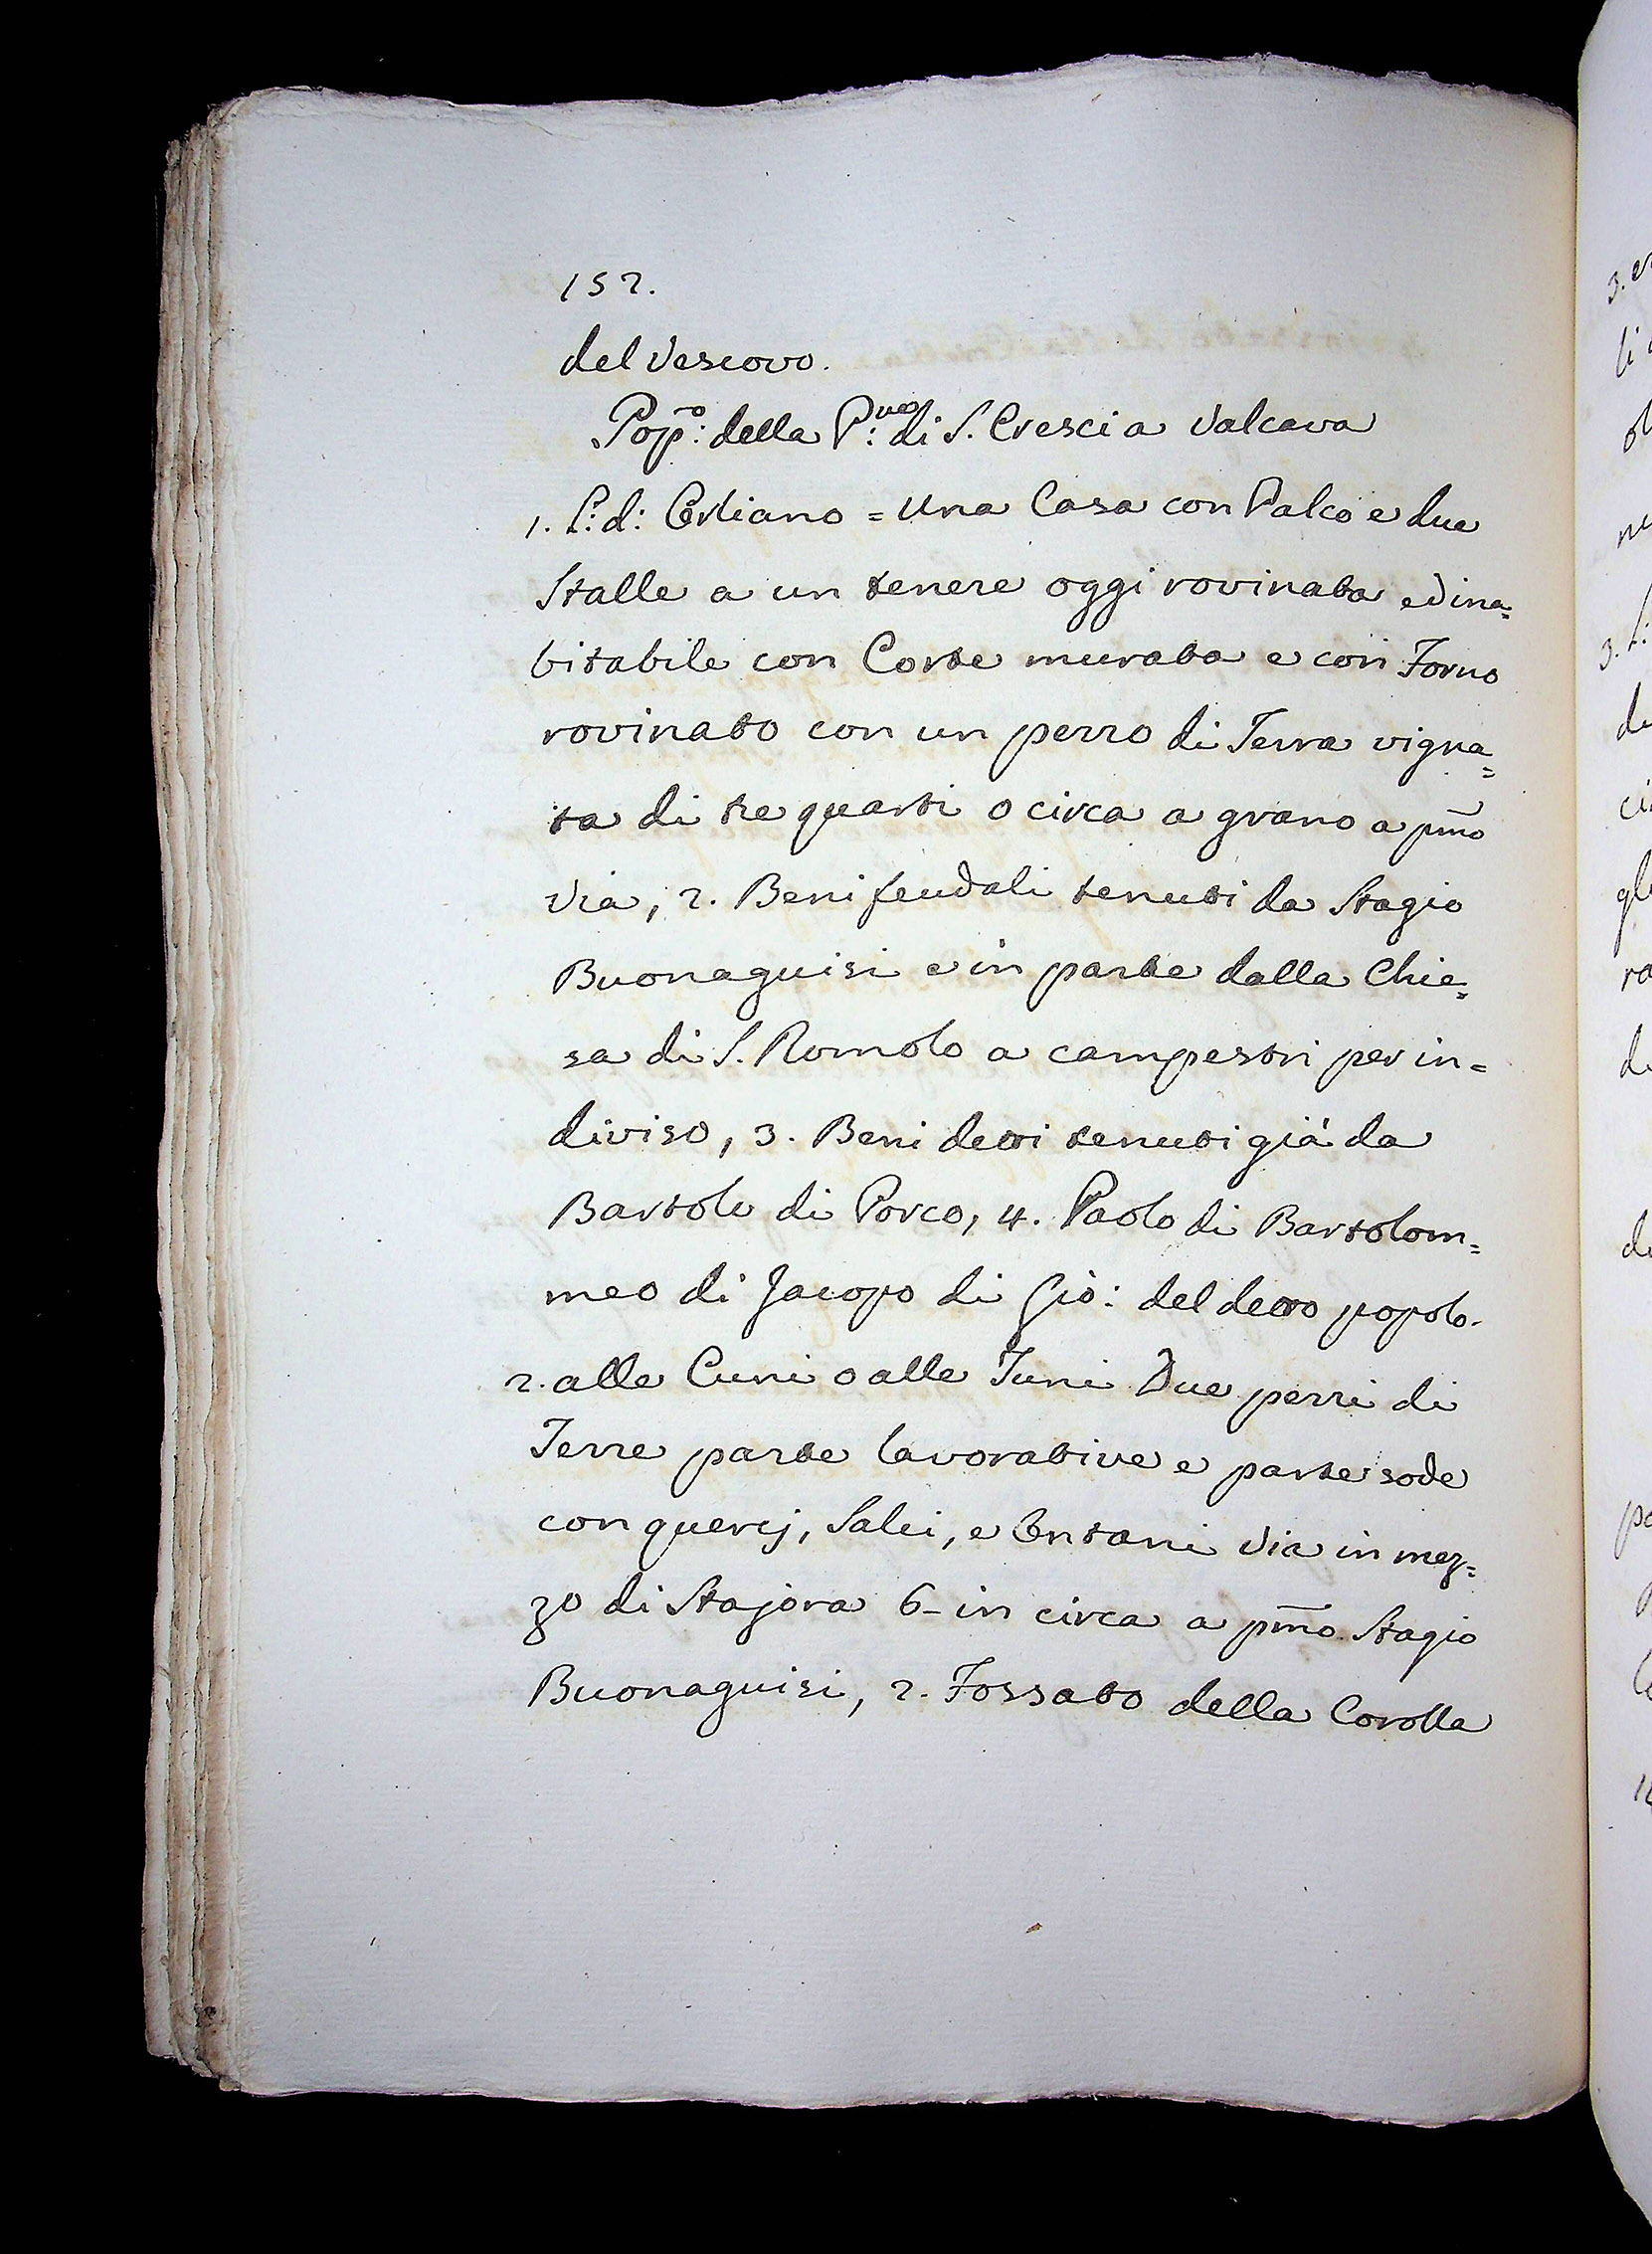 152.
del Vescovo.
Pop.º: della P.ve: di S. Cresci a Valcava
1. L: d: Cerliano = Una Casa con Palco e due
Stalle a un tenere oggi rovinata ed ina=
bitabile con Corte murata e con Forno
rovinato con un pezzo di Terra vigna=
ta di tre quarti o circa a grano a pmo
Via, 2. Beni feudali tenuti da Stagio
Buonaguisi e in parte dalla Chie=
sa di S. Romolo a campestri per in=
diviso, 3. Beni detti tenuti già da
Bartolo di Porco, 4. Paolo di Bartolom=
meo di Jacopo di Gio: del detto popolo.
2. alle Cuni o alle Tuni Due pezzi di
Terre parte lavorative e parte sode
con quercj, Salci, e Ontani Via in mez=
zo di Stajora 6 - in circa a pmo. Stagio
Buonaguisi, 2. Fossato della Corolla